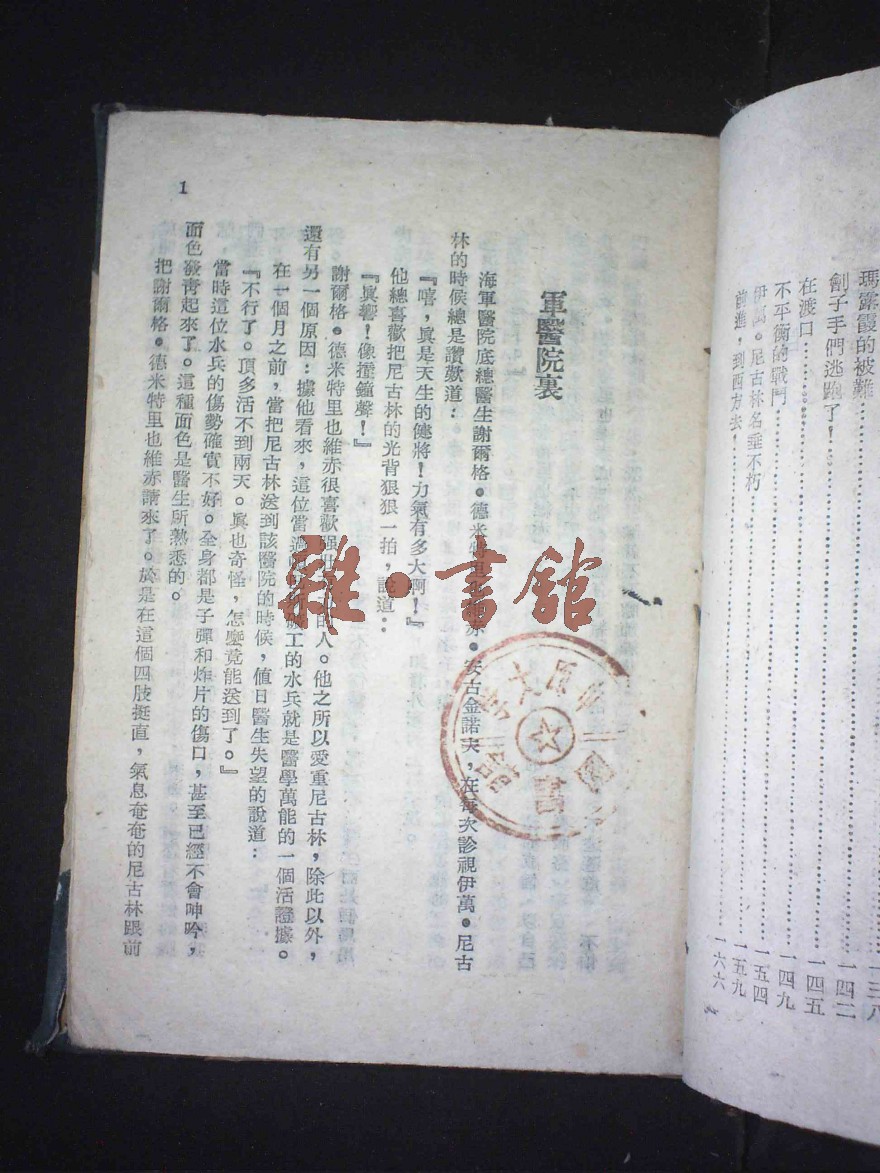 瑪露霞的被難……………一三八
劊子手們逃跑了!……………一四二
在渡口……………一四五
不平衡的戰鬥……………一四九
伊萬。尼古林名垂不朽……………一五四
前進,到西方去!……………一五九
一六六
軍醫院裏
海軍醫院底總醫生謝爾格。德米特里也維赤。安古金諾夫,在每次診視伊萬。尼古
林的時候總是讚歎道:
『嘻,眞是天生的健將!力氣有多大啊!』
他總喜歡把尼古林的光背狠狠一拍,說道:
『眞響!像撞鐘聲!』
謝爾格。德米特里也維赤很喜歡强壯的人。他之所以愛重尼古林,除此以外,
還有另一個原因:據他看來,這位當過礦工的水兵就是醫學萬能的一個活證據。
在一個月之前,當把尼古林送到該醫院的時候,値日醫生失望的說道:
『不行了。頂多活不到兩天。眞也奇怪,怎麼竟能送到了。』
當時這位水兵的傷勢確實不好。全身都是子彈和炸片的傷口,甚至已經不會呻吟,
面色發靑起來了。這種面色是醫生所熟悉的。
把謝爾格。德米特里也維赤請來了。於是在這個四肢挺直,氣息奄奄的尼古林跟前
1
雜·書館
圖書館